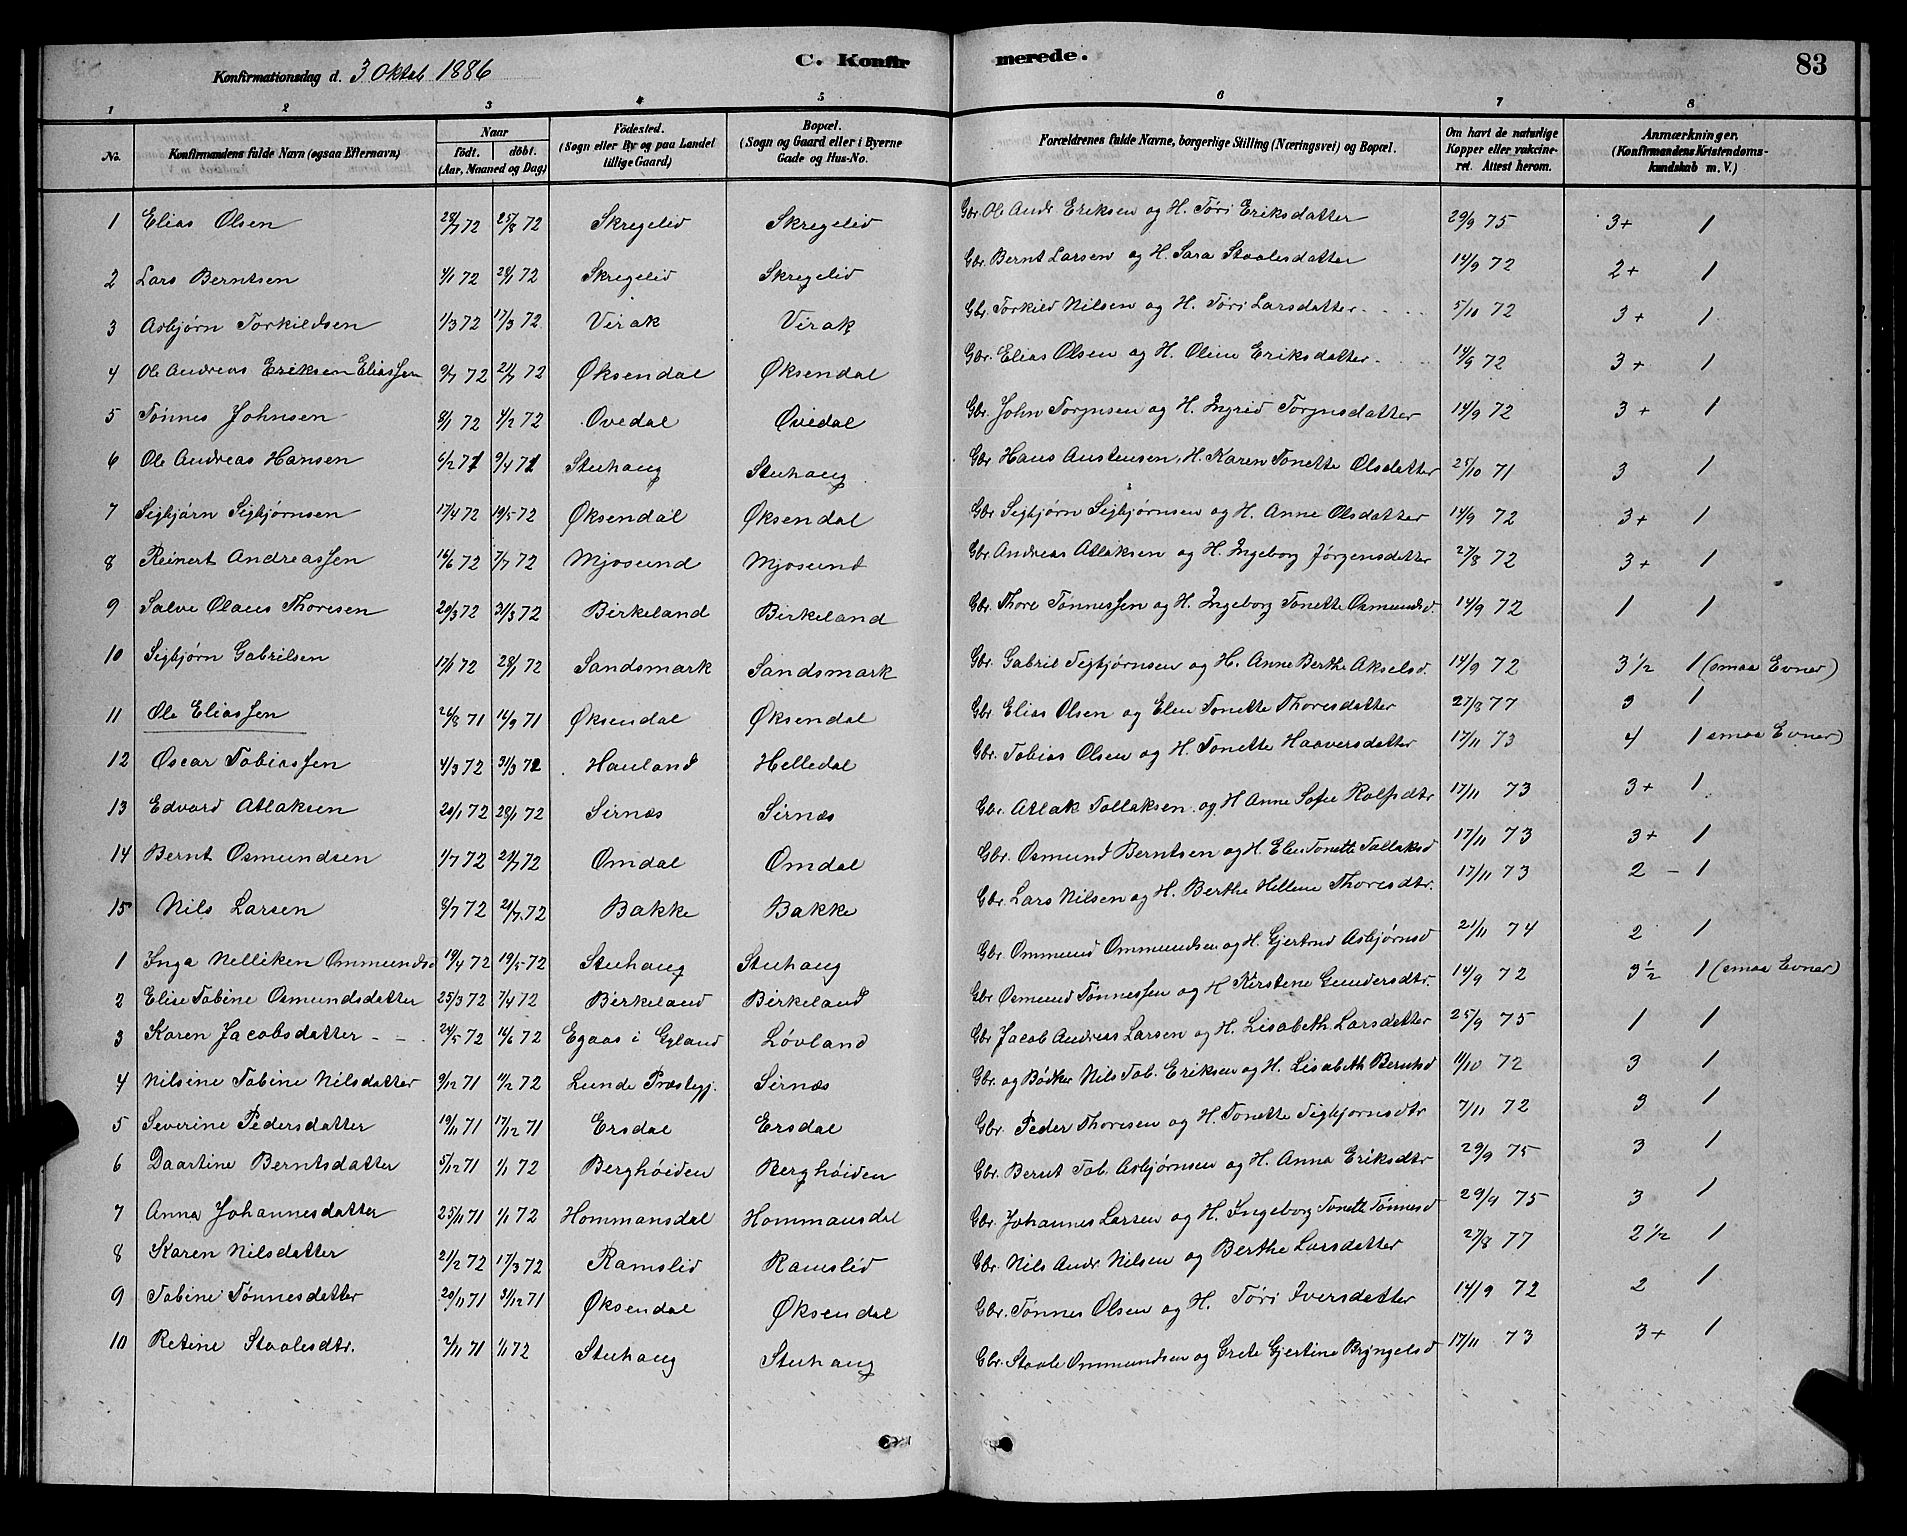 Konfirmationsdag d. 3 Oktob 1886
C. Konfirmerede.
83
1 2 3 4 5 6 7 8
No.
Konfirmandens fulde Navn (ogsaa Efternavn)
Naar
födt. döbt.
(Aar, Maaned og Dag)
Födested.
(Sogn eller By og paa Landet
tillige Gaard)
Bopæl.
(Sogn og Gaard eller i Byerne
Gade og Hus-No.
Forældrenes fulde Navne, borgerlige Stilling (Næringsvei) og Bopæl.
Om havt de naturlige
Kopper eller vakcine-
ret. Attest herom.
Anmærkninger.
(Konfirmandens Kristendoms-
kundskab m. V.)
1 Elias Olsen 28/7 72 25/8 72 Skregelid Skregelid Gbr. Ole Andr. Eriksen og H. Töri Eriksdatter 29/9 75 3+ 1
2 Lars Berntsen 4/1 72 28/1 72 Skregelid Skregelid Gbr. Bernt Larsen og H. Sara Staalesdatter 14/9 72 2+ 1
3 Asbjørn Torkildsen 1/3 72 17/3 72 Virak Virak Gbr. Torkild Nilsen og H. Töri Larsdatter 5/10 72 3+ 1
4 Ole Andreas Eriksen Eliassen 9/7 72 21/7 72 Øksendal Øksendal Gbr. Elias Olsen og H. Oline Eriksdatter 14/9 72 3+ 1
5 Tönnes Johnsen 8/1 72 4/2 72 Ovedal Ovedal Gbr. John Torgnsen og H. Ingrid Torgnsdatter 14/9 72 3+ 1
6 Ole Andreas Hansen 6/2 71 9/4 71 Stuhaug Stuhaug Gbr Hans Austensen, H. Karen Tonette Olsdatter 25/10 71 3 1
7 Sigbjørn Sigbjørnsen 17/4 72 19/5 72 Øksendal Øksendal Gbr Sigbjørn Sigbjørnsen og H. Anne Olsdatter 14/9 72 3+ 1
8 Reinert Andreassen 16/6 72 7/7 72 Mjosund Mjosund Gbr. Andreas Atlaksen og H. Ingeborg Jørgensdatter 27/8 72 3+ 1
9 Salve Olaus Thoresen 20/3 72 31/3 72 Birkeland Birkeland Gbr. Thore Tönnessen og H. Ingeborg Tonette Osmundsd. 14/9 72 1 1
10 Sigbjørn Gabrilsen 17/1 72 28/1 72 Sandsmark Sandsmark Gbr. Gabril Sigbjørnsen og H. Anne Berthe Akselsd. 14/9 72 3 1/2 1 (smaa Evner)
11 Ole Eliassen 26/8 71 16/9 71 Øksendal Øksendal Gbr Elias Olsen og Elen Tonette Thoresdatter 27/8 77 3 1
12 Oscar Tobiassen 4/3 72 31/3 72 Hauland Helledal Gbr. Tobias Olsen og H. Tonette Haaversdatter 17/11 73 4 1 smaa Evner)
13 Edvard Atlaksen 20/1 72 28/1 72 Sirnæs Sirnæs Gbr. Atlak Tollaksen og H Anne Sofie Rolfsdtr 17/11 73 3+ 1
14 Bernt Osmundsen 1/7 72 21/7 72 Omdal Omdal Gbr. Osmund Berntsen og H. Elen Tonette Tollaksd 17/11 73 3+ 1
15 Nils Larsen 8/7 72 21/7 72 Bakke Bakke Gbr. Lars Nilsen og H. Berthe Hellene Thoresdtr. 17/11 73 2 - 1
1 Inga Nelliken Ommundsd 19/4 72 19/5 72 Stuhaug Stuhaug Gbr. Ommund Ommundsen og H. Gjertrud Asbjørnsd 21/11 74 2 1
2 Elise Tobine Osmundsdatter 25/3 72 7/4 72 Birkeland Birkeland Gbr Osmund Tönnessen og H Kirstene Gundersdtr. 14/9 72 3 1/2 1 (smaa Evner)
3 Karen Jacobsdatter 24/5 72 16/6 72 Egaas i Gyland Løvland Gbr Jacob Andreas Larsen og H. Lisabeth Larsdatter 25/9 75 1 1
4 Nilsine Tobine Nilsdatter 9/12 71 11/2 72 Lunde Præstegj. Sirnæs Gbr. og Bødker Nils Tob. Eriksen og H. Lisabeth Berntsd 11/10 72 3 1
5 Severine Pedersdatter 19/11 71 17/12 71 Ersdal Ersdal Gbr. Peder Thoresen og H. Tonette Sigbjørnsdtr 7/11 72 3 1
6 Daartine Berntsdatter 5/12 71 1/1 72 Berghöiden Berghöiden Gbr. Bernt Tob. Asbjørnsen og H. Anna Eriksdtr 29/9 75 3 1
7 Anna Johannesdatter 25/11 71 1/1 72 Hommansdal Hommansdal Gbr. Johannes Larsen og H. Ingeborg Tonette Tønnesd 29/9 75 3 1
8 Karen Nilsdatter 21/2 72 17/3 72 Ramslid Ramslid Gbr. Nils Andr. Nilsen og Berthe Larsdatter 27/8 77 2 1/2 1
9 Tobine Tönnesdatter 20/11 71 31/12 71 Øksendal Øksendal Gbr. Tönnes Olsen og H. Töri Iversdatter 14/9 72 2 1
10 Retine Staalesdtr. 2/11 71 1/1 72 Stuhaug Stuhaug Gbr. Staale Ommundsen og Grete Gjertine Bryngelsd 17/11 73 3+ 1